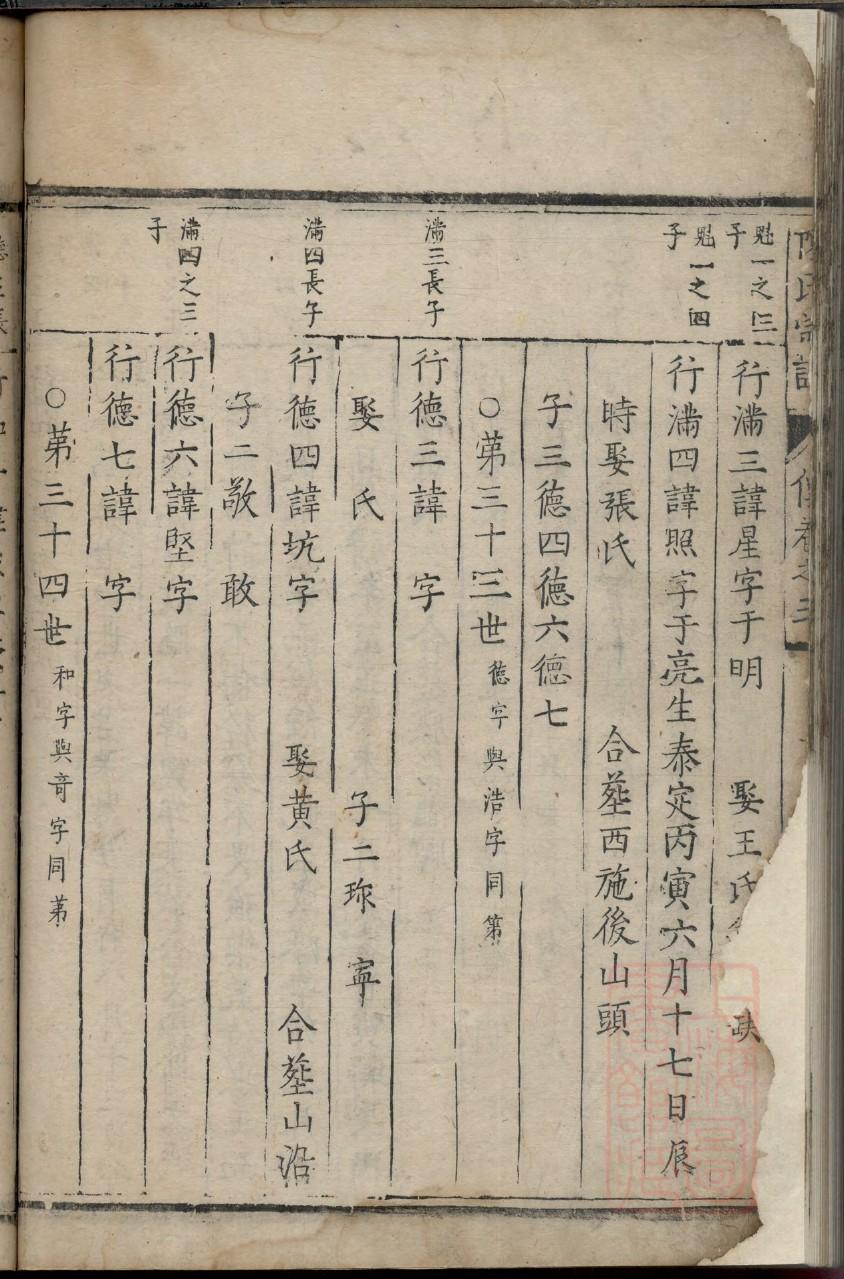 魁一之三
子
行滿三諱星字于明 娶王氏 缺
魁一之四
子
行滿四諱照字于亮生泰定丙寅六月十七日辰
時娶張氏 合塟西施後山頭
子三德四德六德七
○第三十三世德字與浩字同第
滿三長子
行德三諱 字
娶 氏 子二珎 寜
滿四長子
行德四諱坑字 娶黃氏 合塟山沿
子二敬 敢
滿四之三
子
行德六諱堅字
行德七諱 字
○第三十四世和字與奇字同第